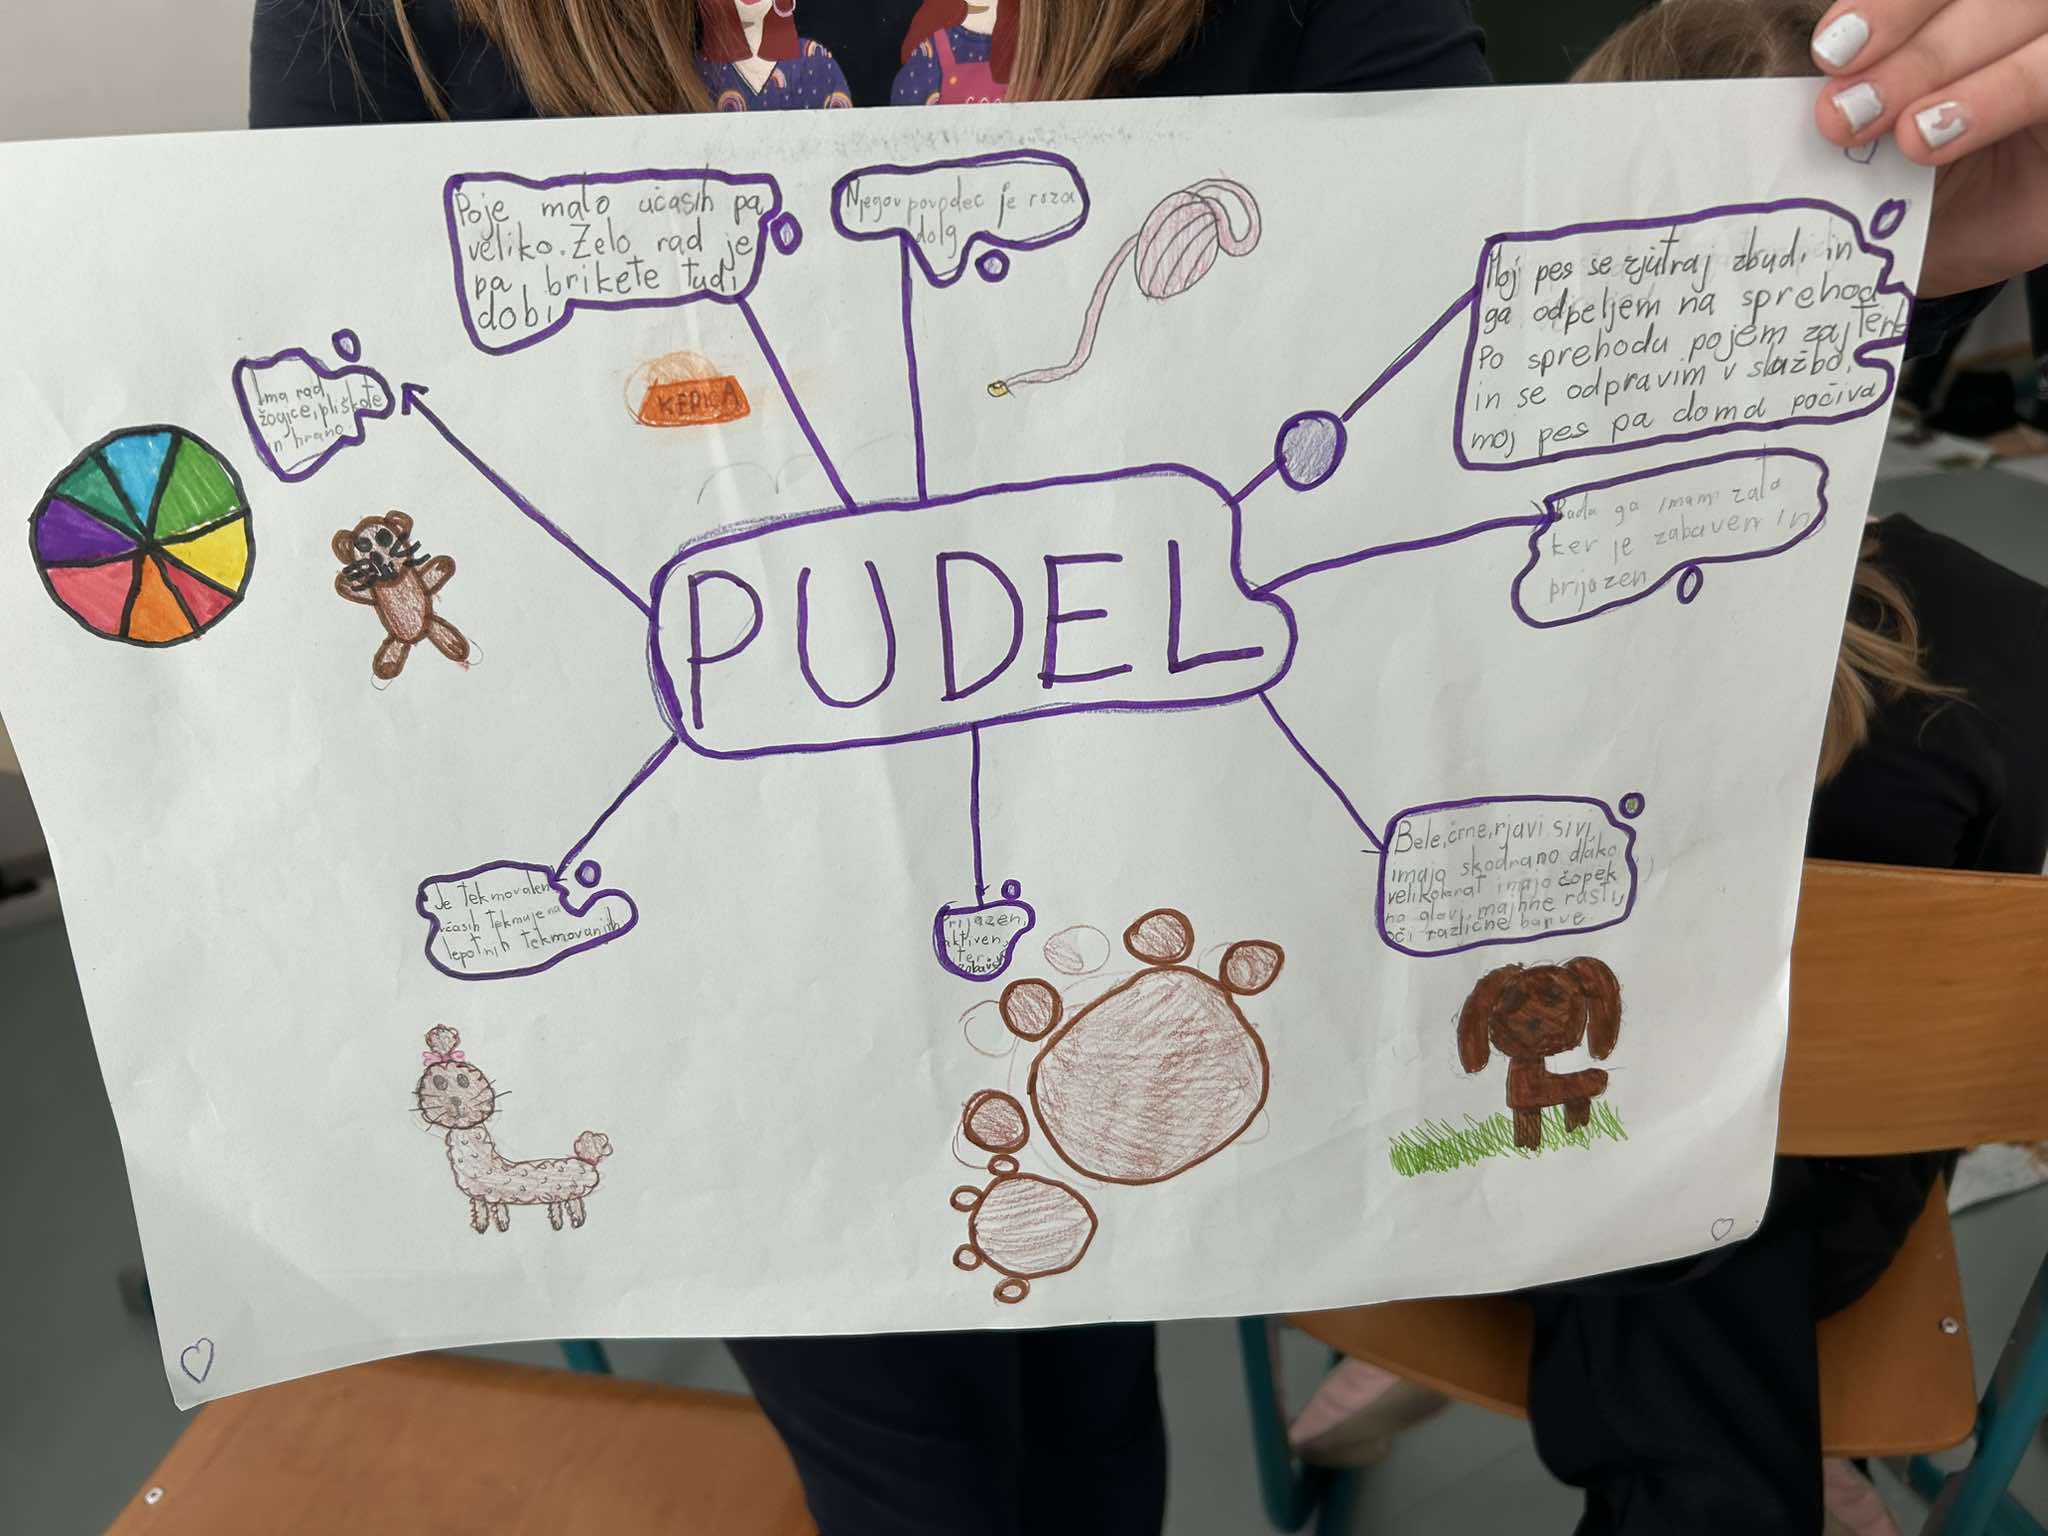 Poje malo ućasih pa
veliko. Zelo rad je
pa brikete tudi
dobi
Njegov povodec je roza
dolg
Moj pes se zjutraj zbudi in
ga odpeljem na sprehod
Po sprehodu pojem zajterk
in se odpravim v službo,
moj pes pa doma počiva
Ima rad
žogice, pliškote
in hrano
KEPICA
Rada ga imam zato
ker je zabaven in
prijazen
PUDEL
Je tekmovalen
včasih tekmuje na
lepotnih tekmovanjih
Prijazen,
aktiven,
ter
Bele, črne, rjavi sivi,
imajo skodrano dlako
velikokrat imajo čopek
na glavi, majhne rasti,
oči različne barve